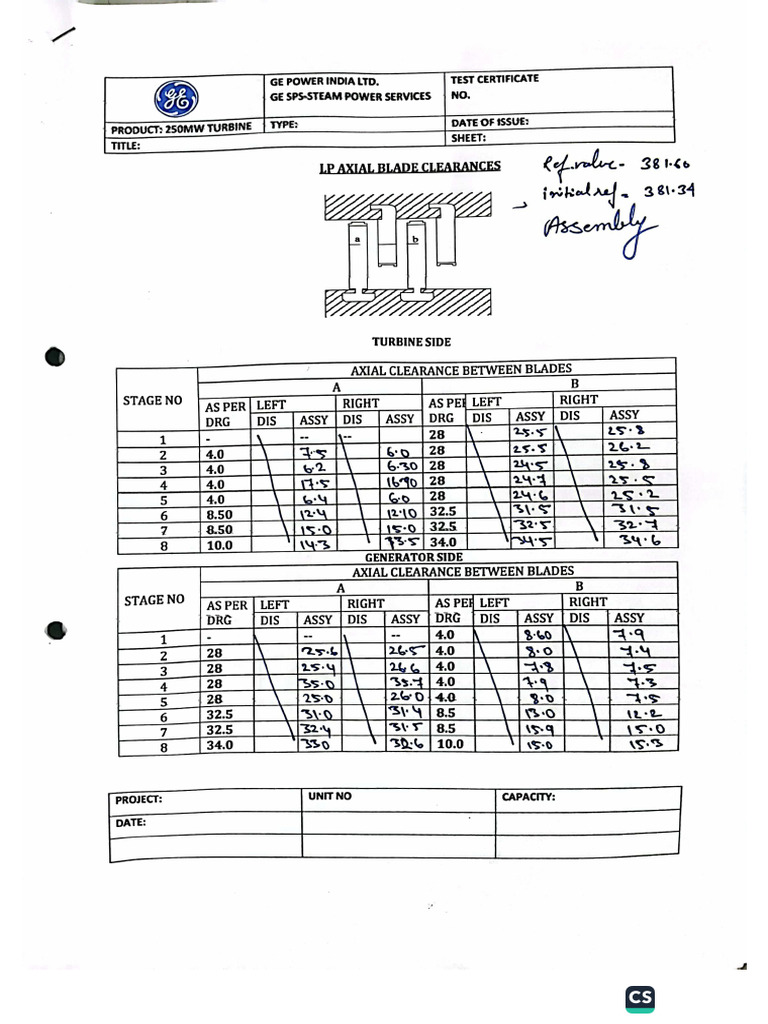 GE POWER INDIA LTD. TEST CERTIFICATE
GE SPS-STEAM POWER SERVICES NO.
PRODUCT: 250MW TURBINE TYPE: DATE OF ISSUE:
TITLE: SHEET:
LP AXIAL BLADE CLEARANCES
Ref.value- 381.60
initial ref - 381.34
Assembly
a b
TURBINE SIDE
AXIAL CLEARANCE BETWEEN BLADES
STAGE NO A B
AS PER DRG LEFT RIGHT AS PER DRG LEFT RIGHT
DIS ASSY DIS ASSY DIS ASSY DIS ASSY
1 - -- -- 28 25.5 25.8
2 4.0 7.5 6.0 28 25.5 26.2
3 4.0 6.2 6.30 28 24.5 25.8
4 4.0 17.5 16.90 28 24.7 25.5
5 4.0 6.4 6.0 28 24.6 25.2
6 8.50 12.4 12.10 32.5 31.5 31.5
7 8.50 15.0 15.0 32.5 32.5 32.7
8 10.0 14.3 13.5 34.0 34.5 34.6
GENERATOR SIDE
AXIAL CLEARANCE BETWEEN BLADES
STAGE NO A B
AS PER DRG LEFT RIGHT AS PER DRG LEFT RIGHT
DIS ASSY DIS ASSY DIS ASSY DIS ASSY
1 - -- -- 4.0 8.60 7.9
2 28 25.6 26.5 4.0 8.0 7.4
3 28 25.4 26.6 4.0 7.8 7.5
4 28 35.0 35.7 4.0 7.9 7.3
5 28 25.0 26.0 4.0 8.0 7.5
6 32.5 31.0 31.4 8.5 13.0 12.2
7 32.5 32.4 31.5 8.5 15.9 15.0
8 34.0 330 32.6 10.0 15.0 15.3
PROJECT: UNIT NO CAPACITY:
DATE:
CS